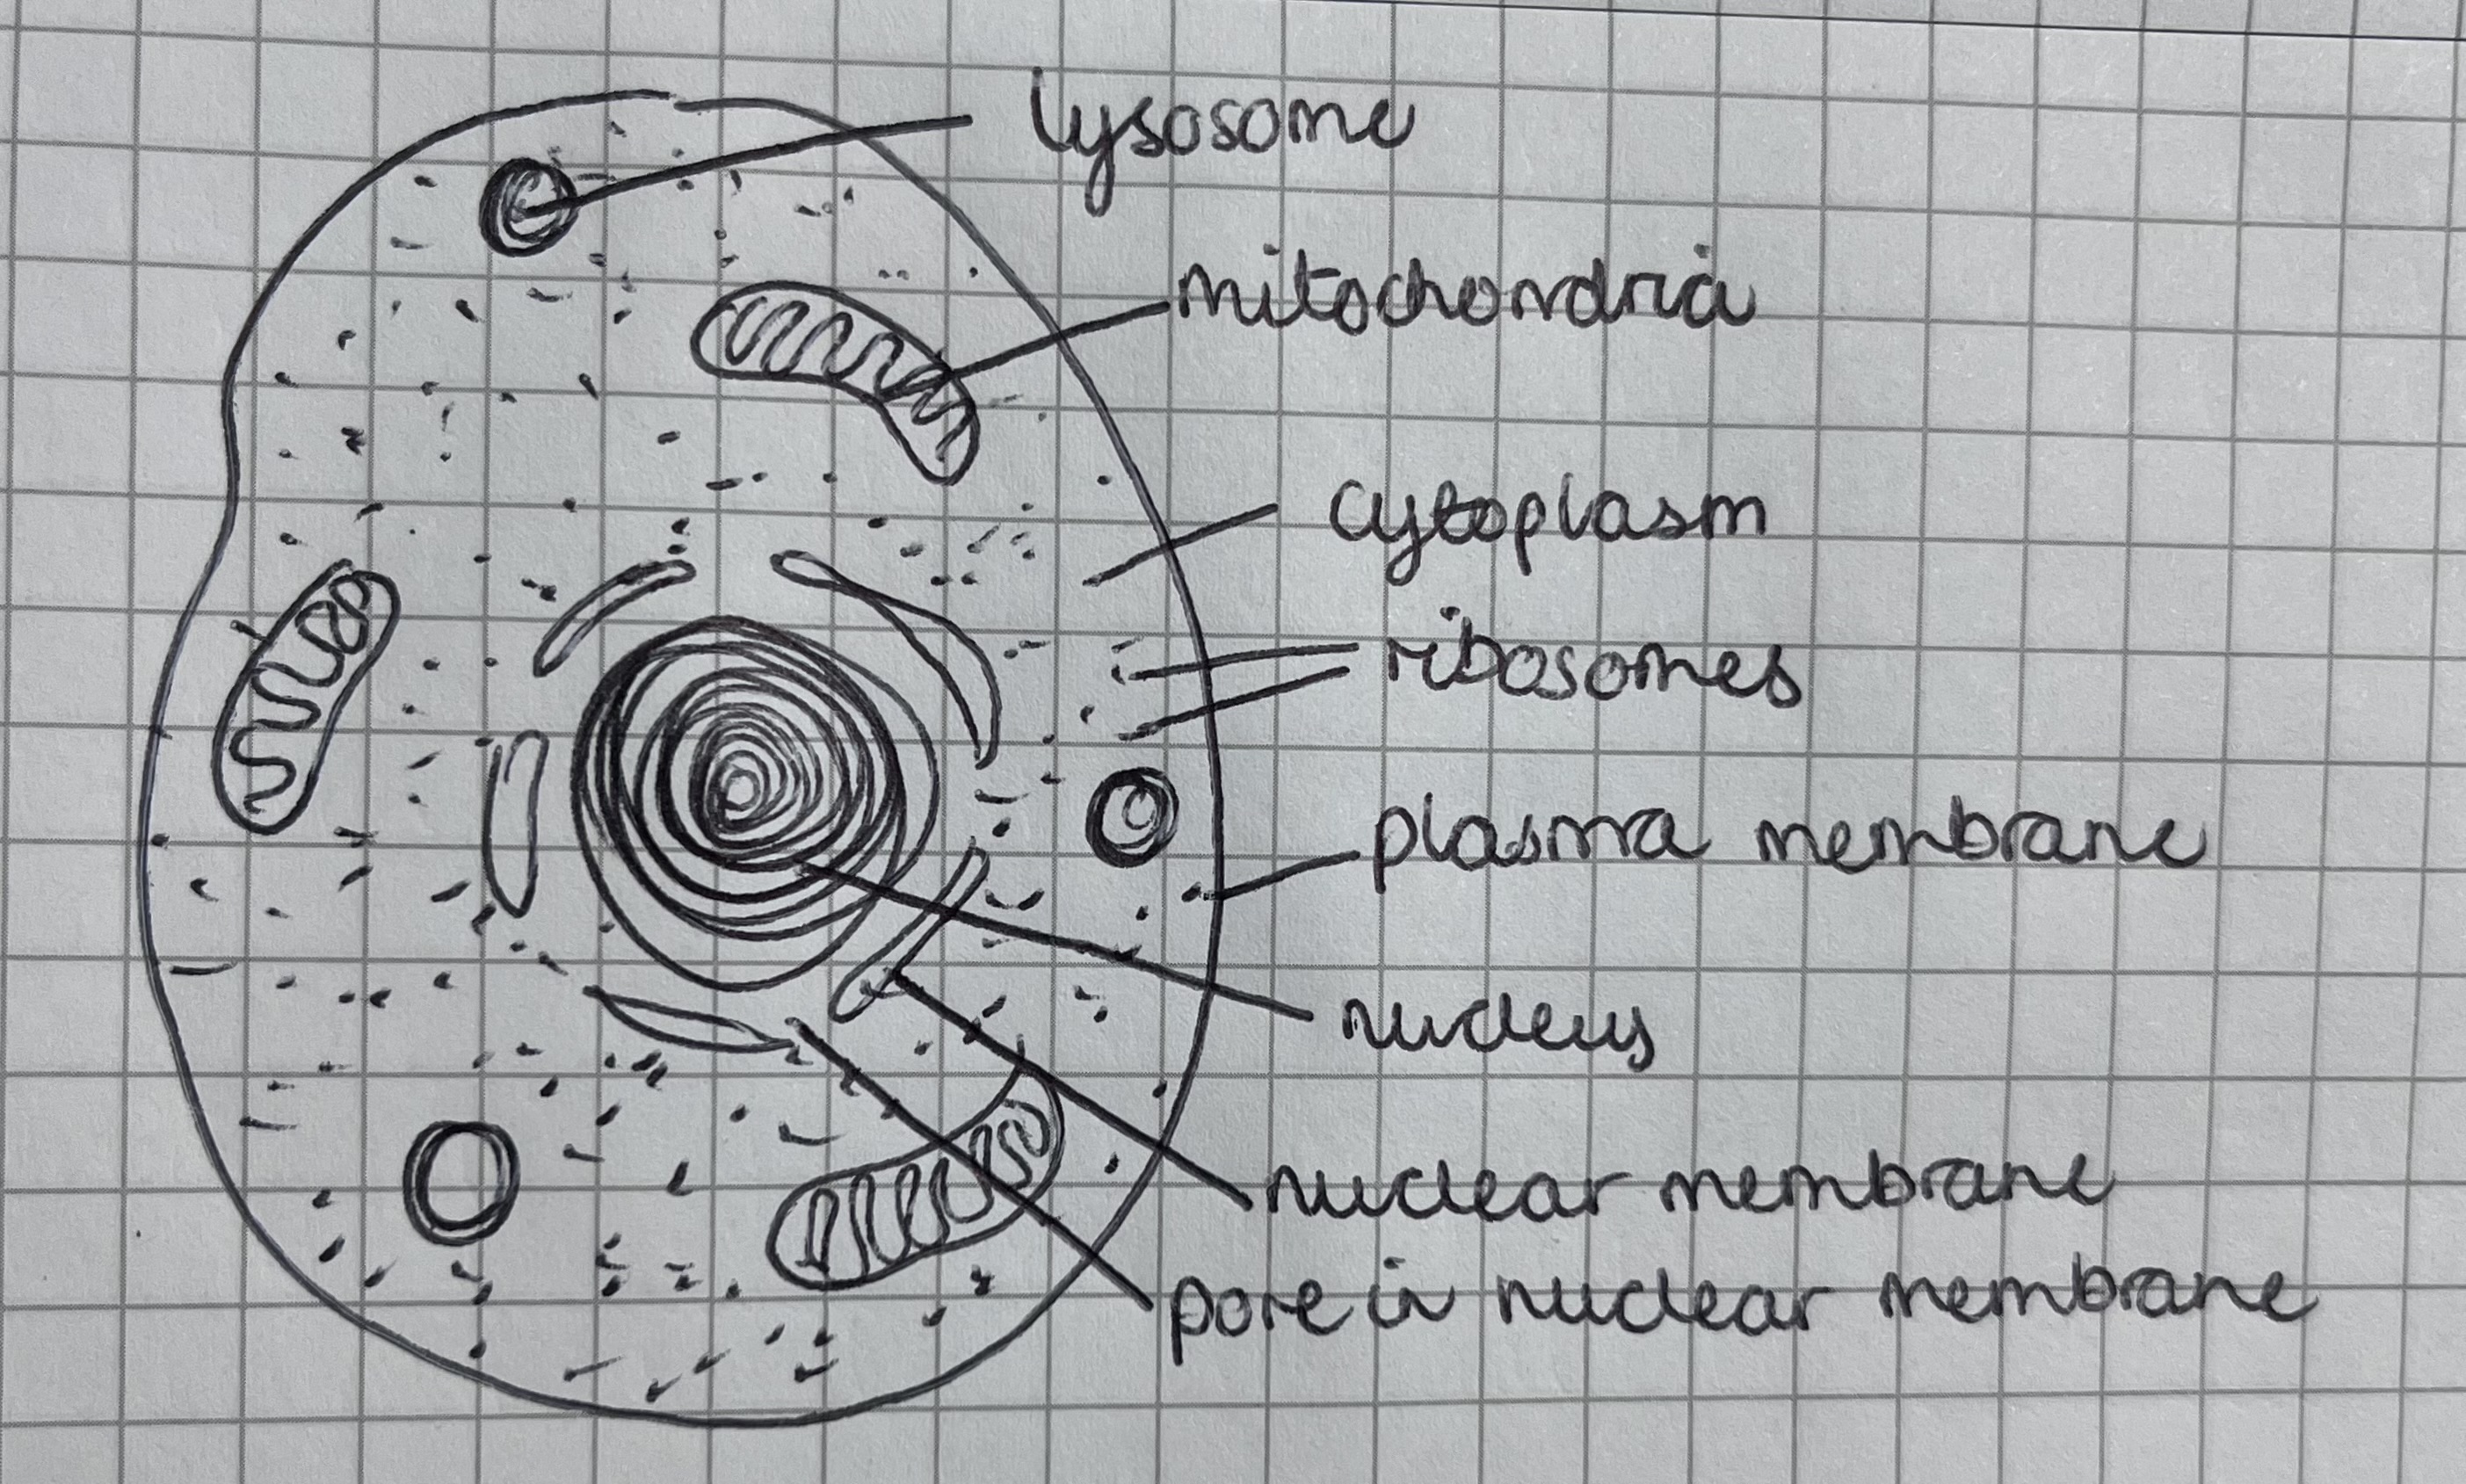 lysosome
mitochondria
cytoplasm
ribosomes
plasma membrane
nucleus
nuclear membrane
pore in nuclear membrane